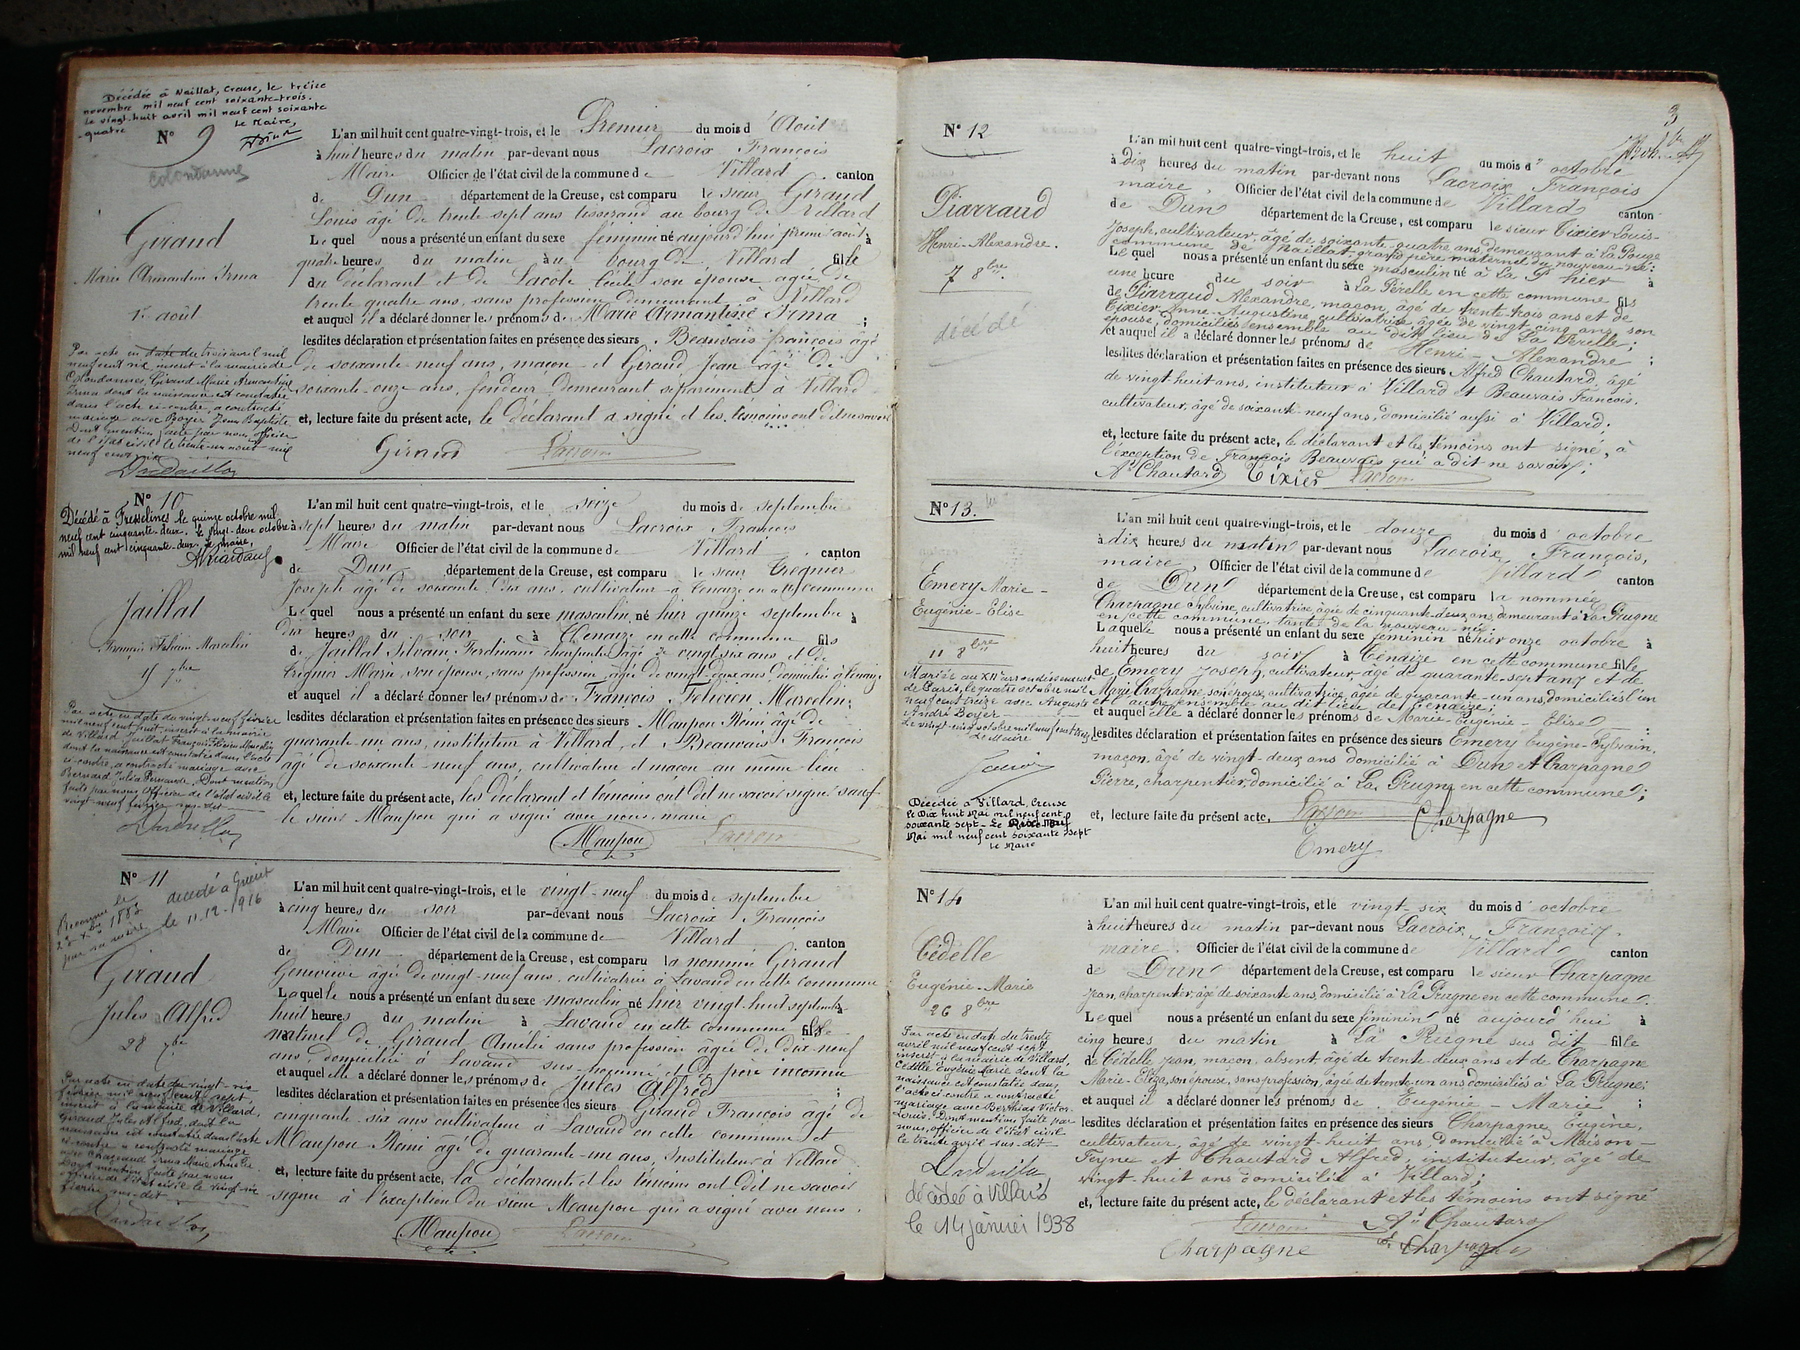 Décédée à Naillat, Creuse, le treize
novembre mil neuf cent soixante-trois.
le vingt-huit avril mil neuf cent soixante
-quatre
le Maire,
N° 9
Colondannes
Giraud
Marie Armandine Irma
1er août
Par acte en date du trois avril mil
neuf cent six inscrit à la mairie de
Colondannes, Giraud Marie Armantine
Irma dont la naissance est constatée
dans l'acte ci-contre, a contracté
mariage avec Boyer Jean Baptiste
Dont mention faite par nous officier
de l'état civil le trente un août mil
neuf cent six
Dardaillon
L'an mil huit cent quatre-vingt-trois, et le Premier du mois d'Août
à huit heures du matin par-devant nous Lacroix François
Maire Officier de l'état civil de la commune de Villard canton
de Dun département de la Creuse, est comparu le sieur Giraud
Louis âgé de trente sept ans tisserand au bourg de Villard
Lequel nous a présenté un enfant du sexe féminin né aujourd'hui premier août à
quatre heures du matin au bourg de Villard fille
du déclarant et de Lacôte Cécile son épouse agée de
trente quatre ans, sans profession demeurant à Villard
et auquel il a déclaré donner les prénoms de Marie Armantine Irma ;
lesdites déclaration et présentation faites en présence des sieurs Beauvais françois âgé
de soixante neuf ans, maçon et Giraud Jean âgé de
soixante-onze ans, fendeur demeurant séparément à Villard
et, lecture faite du présent acte, le déclarant a signé et les témoins ont dit ne savoir
Giraud Lacroix
N° 10
Décédé à Fresselines le quinze octobre mil
neuf cent cinquante-deux. Le vingt-deux octobre
mil neuf cent cinquante-deux. Le maire,
Jaillat
François Félicien Marcelin
15 7bre
Par acte en date du vingt-neuf février
mil neuf cent huit inscrit à la mairie
de Villard Jaillat François Félicien Marcelin
dont la naissance est constatée dans l'acte
ci-contre, a contracté mariage avec
Bernard Julia Fernande. Dont mention
faite par nous officier de l'état civil le
vingt-neuf février sus-dit
Dardaillon
L'an mil huit cent quatre-vingt-trois, et le seize du mois de septembre
à sept heures du matin par-devant nous Lacroix François
Maire Officier de l'état civil de la commune de Villard canton
de Dun département de la Creuse, est comparu le sieur Tregnier
Joseph âgé de soixante dix ans, cultivateur à Cenaize en cette commune
Lequel nous a présenté un enfant du sexe masculin, né hier quinze septembre à
dix heures du soir à Cenaize en cette commune fils
de Jaillat Silvain Ferdinand charpentier âgé de vingt six ans et de
Tregnier Marie, son épouse, sans profession, âgée de vingt-deux ans, domiciliés à Cenaize
et auquel il a déclaré donner les prénoms de François Félicien Marcelin
lesdites déclaration et présentation faites en présence des sieurs Maupou Rémi âgé de
quarante-un ans, instituteur à Villard, et Beauvais François
âgé de soixante-neuf ans, cultivateur et maçon au même lieu
et, lecture faite du présent acte, les déclarant et témoins ont dit ne savoir signer sauf
le sieur Maupou qui a signé avec nous, maire
Maupou Lacroix
N° 11
décédé à Guéret
le 11.12.1916
Reconnu le
2 Xbre 1883
par sa mère
Giraud
Jules Alfred
28 7bre
Par acte en date du vingt-six
février mil neuf cent sept,
inscrit à la mairie de Villard,
Giraud Jules Alfred, dont la
naissance est constatée dans l'acte
ci-contre a contracté mariage
avec Chagnaud Irma Marie Amélie
Dont mention faite par nous
officier de l'état civil le vingt-six
février sus-dit
Dardaillon
L'an mil huit cent quatre-vingt-trois, et le vingt-neuf du mois de septembre
à cinq heures du soir par-devant nous Lacroix François
Maire Officier de l'état civil de la commune de Villard canton
de Dun département de la Creuse, est comparu la nommée Giraud
Geneviève âgée de vingt-neuf ans, cultivatrice à Lavaud en cette commune
Laquelle nous a présenté un enfant du sexe masculin né hier vingt-huit septembre à
huit heures du matin à Lavaud en cette commune fils
naturel de Giraud Amélie sans profession âgée de dix-neuf
ans domiciliée à Lavaud sus-nommé et de père inconnu
et auquel elle a déclaré donner les prénoms de Jules Alfred ;
lesdites déclaration et présentation faites en présence des sieurs Giraud François âgé de
cinquante-six ans cultivateur à Lavaud en cette commune et
Maupou Rémi âgé de quarante-un ans, Instituteur à Villard
et, lecture faite du présent acte, la déclarante et les témoins ont dit ne savoir
signer à l'exception du sieur Maupou qui a signé avec nous.
Maupou Lacroix
3
N° 12
Piarraud
Henri-Alexandre.
7 8bre
décédé
L'an mil huit cent quatre-vingt-trois, et le huit du mois d'octobre
à dix heures du matin par-devant nous Lacroix François
maire, Officier de l'état civil de la commune de Villard canton
de Dun département de la Creuse, est comparu le sieur Tixier Louis-
Joseph, cultivateur, âgé de soixante-quatre ans, demeurant à La Pouge
commune de Naillat, grand père maternel du nouveau-né ;
Lequel nous a présenté un enfant du sexe masculin né à La Plle hier à
une heure du soir à La Pérelle en cette commune fils
de Piarraud Alexandre, maçon, âgé de trente-trois ans et de
Tixier Anne-Augustine, cultivatrice, âgée de vingt-cinq ans, son
épouse, domiciliés ensemble au dit lieu de La Pérelle ;
et auquel il a déclaré donner les prénoms de Henri-Alexandre ;
lesdites déclaration et présentation faites en présence des sieurs Alfred Chautard, âgé
de vingt-huit ans, instituteur à Villard et Beauvais François,
cultivateur, âgé de soixante-neuf ans, domicilié aussi à Villard.
et, lecture faite du présent acte, le déclarant et les témoins ont signé, à
l'exception de François Beauvais qui a dit ne savoir ;
Ad Chautard Tixier Lacroix
N° 13.
Emery Marie-
Eugénie-Elise
11 8bre
Mariée au XIIe arrondissement
de Paris, le quatre octobre mil
neuf cent treize avec Auguste
André Boyer
Le vingt-cinq octobre mil neuf cent treize
Le Maire
Décédée à Villard, Creuse
le Dix huit Mai mil neuf cent
soixante sept - Le Dix-Neuf
Mai mil neuf cent soixante sept
le Maire
L'an mil huit cent quatre-vingt-trois, et le douze du mois d'octobre
à dix heures du matin par-devant nous Lacroix François,
maire, Officier de l'état civil de la commune de Villard canton
de Dun département de la Creuse, est comparu la nommée
Charpagne Sylvine, cultivatrice, âgée de cinquante-deux ans, demeurant à La Prugne
en cette commune, tante de la nouveau-née
Laquelle nous a présenté un enfant du sexe féminin né hier onze octobre à
huit heures du soir à Cénaize en cette commune fille
de Emery Joseph, cultivateur, âgé de quarante-sept ans et de
Marie Charpagne, son épouse, cultivatrice, âgée de quarante-un ans domiciliés l'un
et l'autre ensemble au dit lieu de Cénaize ;
et auquel elle a déclaré donner les prénoms de Marie-Eugénie-Elise ;
lesdites déclaration et présentation faites en présence des sieurs Emery Eugène-Sylvain,
maçon, âgé de vingt-deux ans domicilié à Dun et Charpagne
Pierre, charpentier, domicilié à La Prugne en cette commune ;
et, lecture faite du présent acte, Lacroix Charpagne
Emery
N° 14
Cédelle
Eugénie-Marie
26 8bre
Par acte en date du trente
avril mil neuf cent sept
inscrit à la mairie de Villard,
Cédelle Eugénie Marie dont la
naissance est constatée dans
l'acte ci-contre a contracté
mariage avec Berthias Victor
Louis. Dont mention faite par
nous, officier de l'état civil
le trente avril sus-dit
Dardaillon
décédée à Villard
le 14 janvier 1938
L'an mil huit cent quatre-vingt-trois, et le vingt-six du mois d'octobre
à huit heures du matin par-devant nous Lacroix François,
maire Officier de l'état civil de la commune de Villard canton
de Dun département de la Creuse, est comparu le sieur Charpagne
Jean, charpentier, âgé de soixante ans, domicilié à La Prugne en cette commune ;
Lequel nous a présenté un enfant du sexe féminin né aujourd'hui à
cinq heures du matin à La Prugne sus dit fille
de Cédelle Jean, maçon, absent, âgé de trente-deux ans et de Charpagne
Marie-Eliza, son épouse, sans profession, âgée de trente-un ans domiciliés à La Prugne ;
et auquel il a déclaré donner les prénoms de Eugénie-Marie ;
lesdites déclaration et présentation faites en présence des sieurs Charpagne Eugène,
cultivateur, âgé de vingt-huit ans, domicilié à Maison-
Feyne et Chautard Alfred, instituteur, âgé de
vingt-huit ans domicilié à Villard ;
et, lecture faite du présent acte, le déclarant et les témoins ont signé
Lacroix Ad Chautard
Charpagne Charpagne